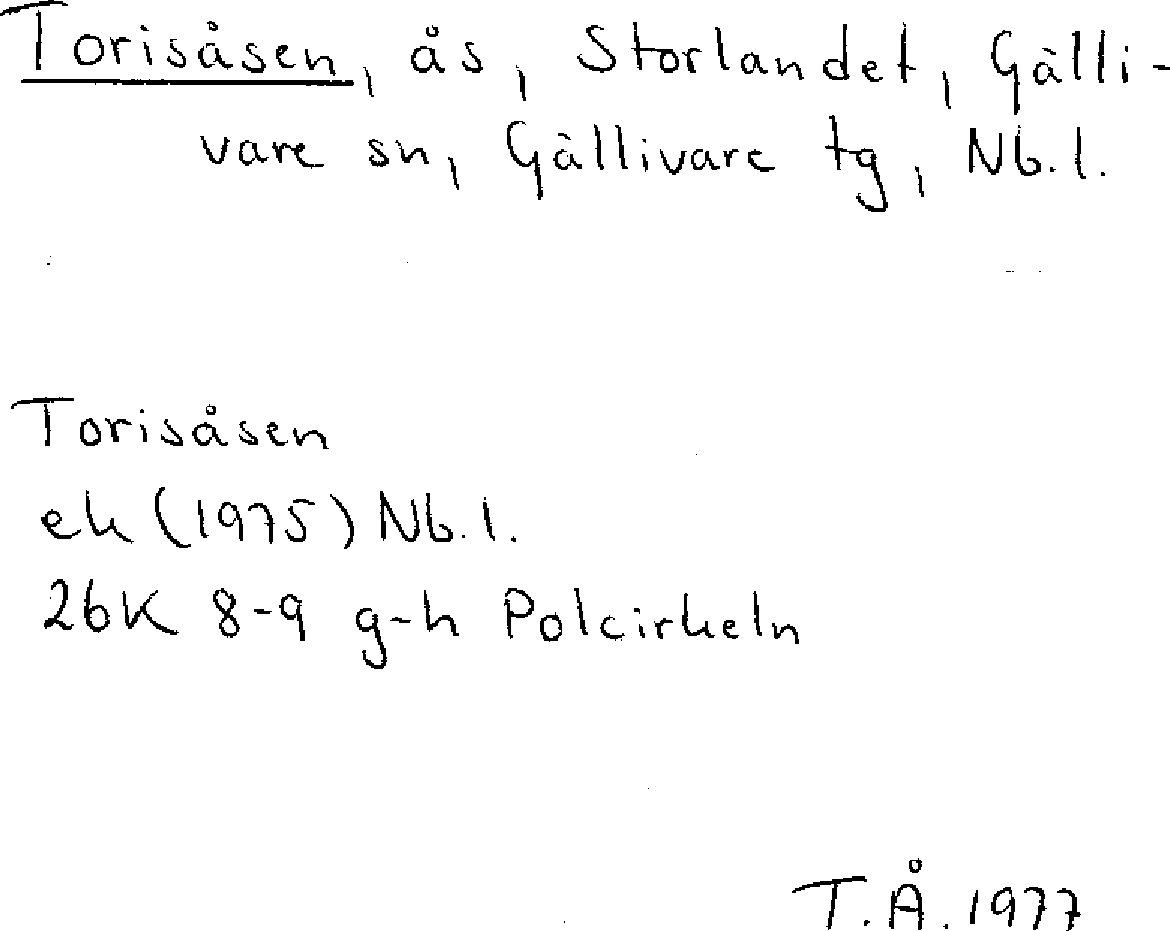 Torisåsen, ås, Storlandet, Gälli-
vare sn, Gällivare tg, Nb.l.
Torisåsen
ek (1975) Nb.l.
26K 8-9 g-h Polcirkeln
T.Å. 1977